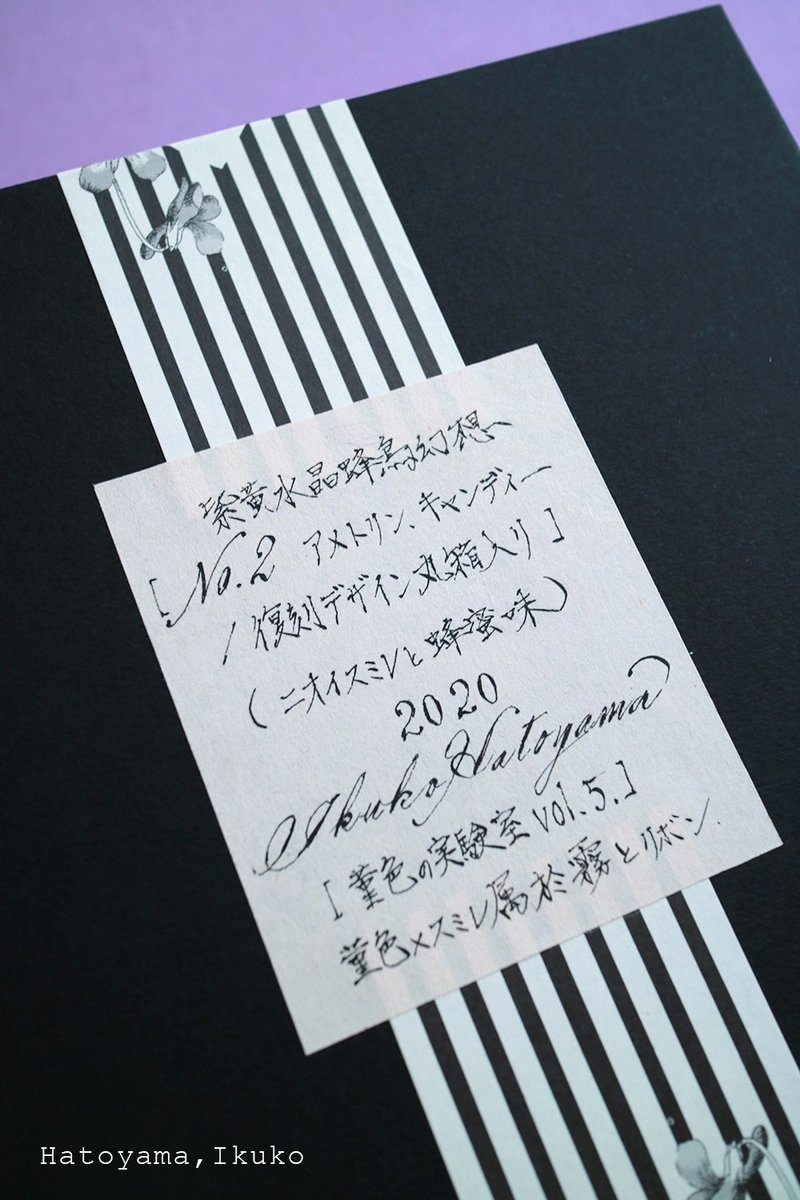 紫黄水晶蜂鳥幻想へ
[No.2 アメトリン、キャンディー
/復刻デザイン丸箱入り]
(ニオイスミレと蜂蜜味)
2020
Ikuko Hatoyama
[菫色の実験室 vol.5.]
菫色×スミレ属於霧とリボン.
Hatoyama,Ikuko